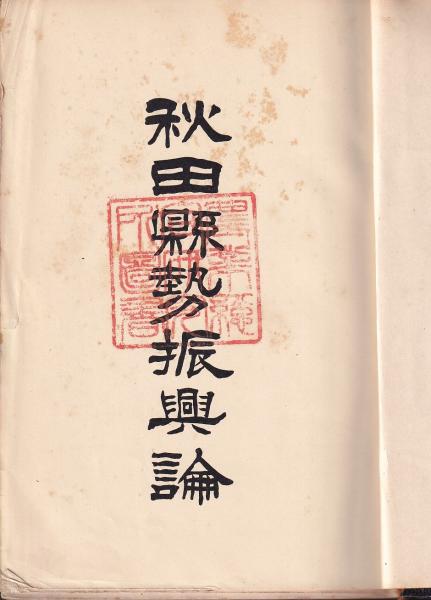 秋田縣勢振興論